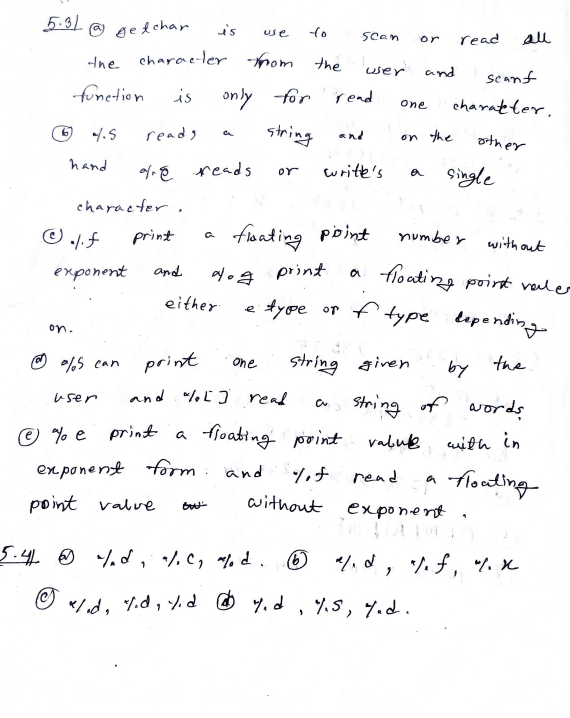 5.3/ (a) getchar is use to scan or read all
the character from the user and scanf
function is only for read one charatter.
(b) %.s reads a string and on the other
hand %.c reads or write's a single
character.
(c) %.f print a floating point number without
exponent and %g print a floating point value
either e type or f type depending
on.
(d) %s can print one string given by the
user and %[] read a string of words
(e) %e print a floating point value with in
exponent form. and %.f read a floating
point valve without exponent.
5.4/ (a) %.d, %.c, %.d. (b) %.d, %.f, %.x
(c) %.d, %.d, %.d (d) %.d, %.s, %.d.